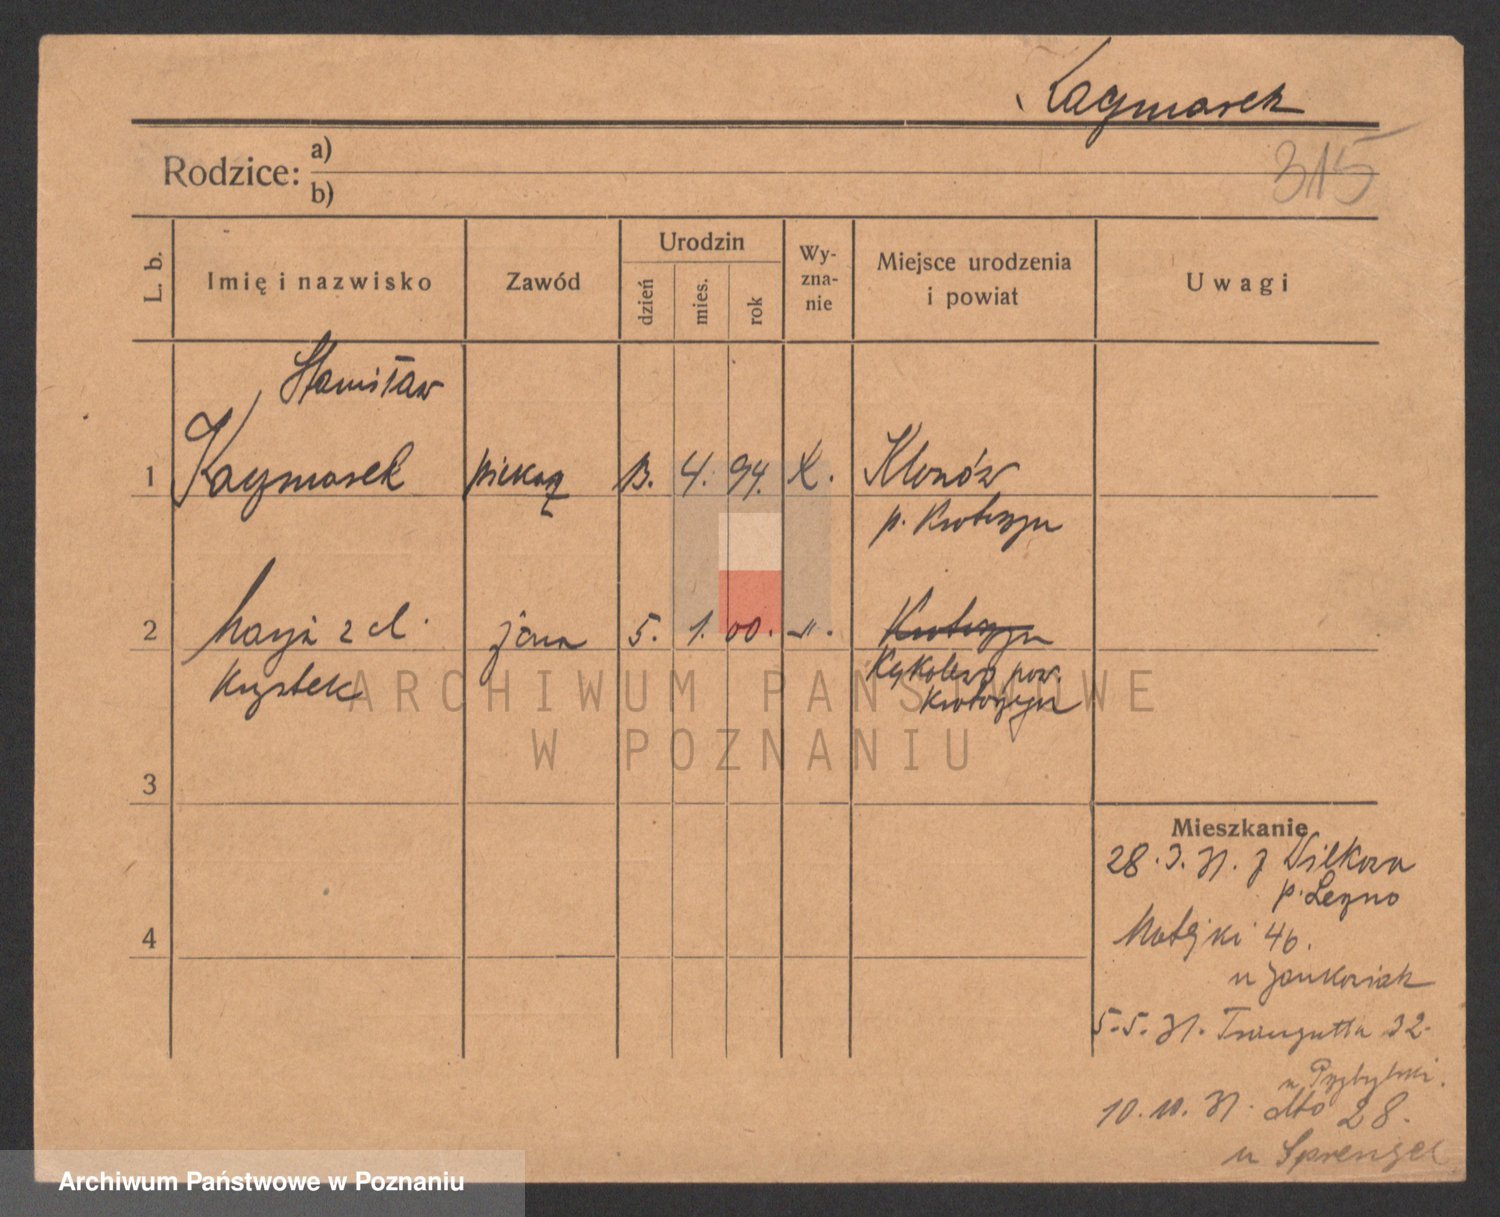 Kaczmarek
315
Rodzice: a)
b)
L. b.
Imię i nazwisko
Zawód
Urodzin
dzień
mies.
rok
Wy-
zna-
nie
Miejsce urodzenia
i powiat
Uwagi
Stanisław
1 Kaczmarek piekarz 13. 4. 94. K.
p. Krotoszyn
2 Marja z d. żona 5. 1. 00. -"-. Krotoszyn
Krystek
pow.
Krotoszyn
3
4
Mieszkanie
28.3.31. z
p. Leszno
Matejki 46.
u Jankowiak
5.5.31. Traugutta 32.
u Przybylski.
10.10.31. dto 28.
u Sprengel
ARCHIWUM PAŃSTWOWE
W POZNANIU
Archiwum Państwowe w Poznaniu